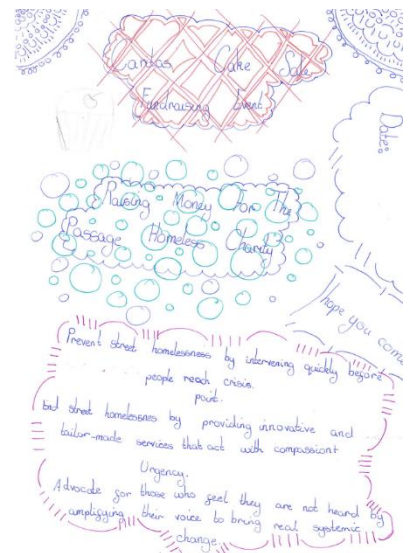 Caritas Cake Sale
Fundraising Event
Date:
Raising Money For The
Passage Homeless Charity
hope you come
Prevent street homelessness by intervening quickly before
people reach crisis.
point.
End street homelessnes by providing innovative and
tailor-made services that act with compassiont
Urgency.
Advocate for those who feel they are not heard by
amplifying their voice to bring real systemic
change.